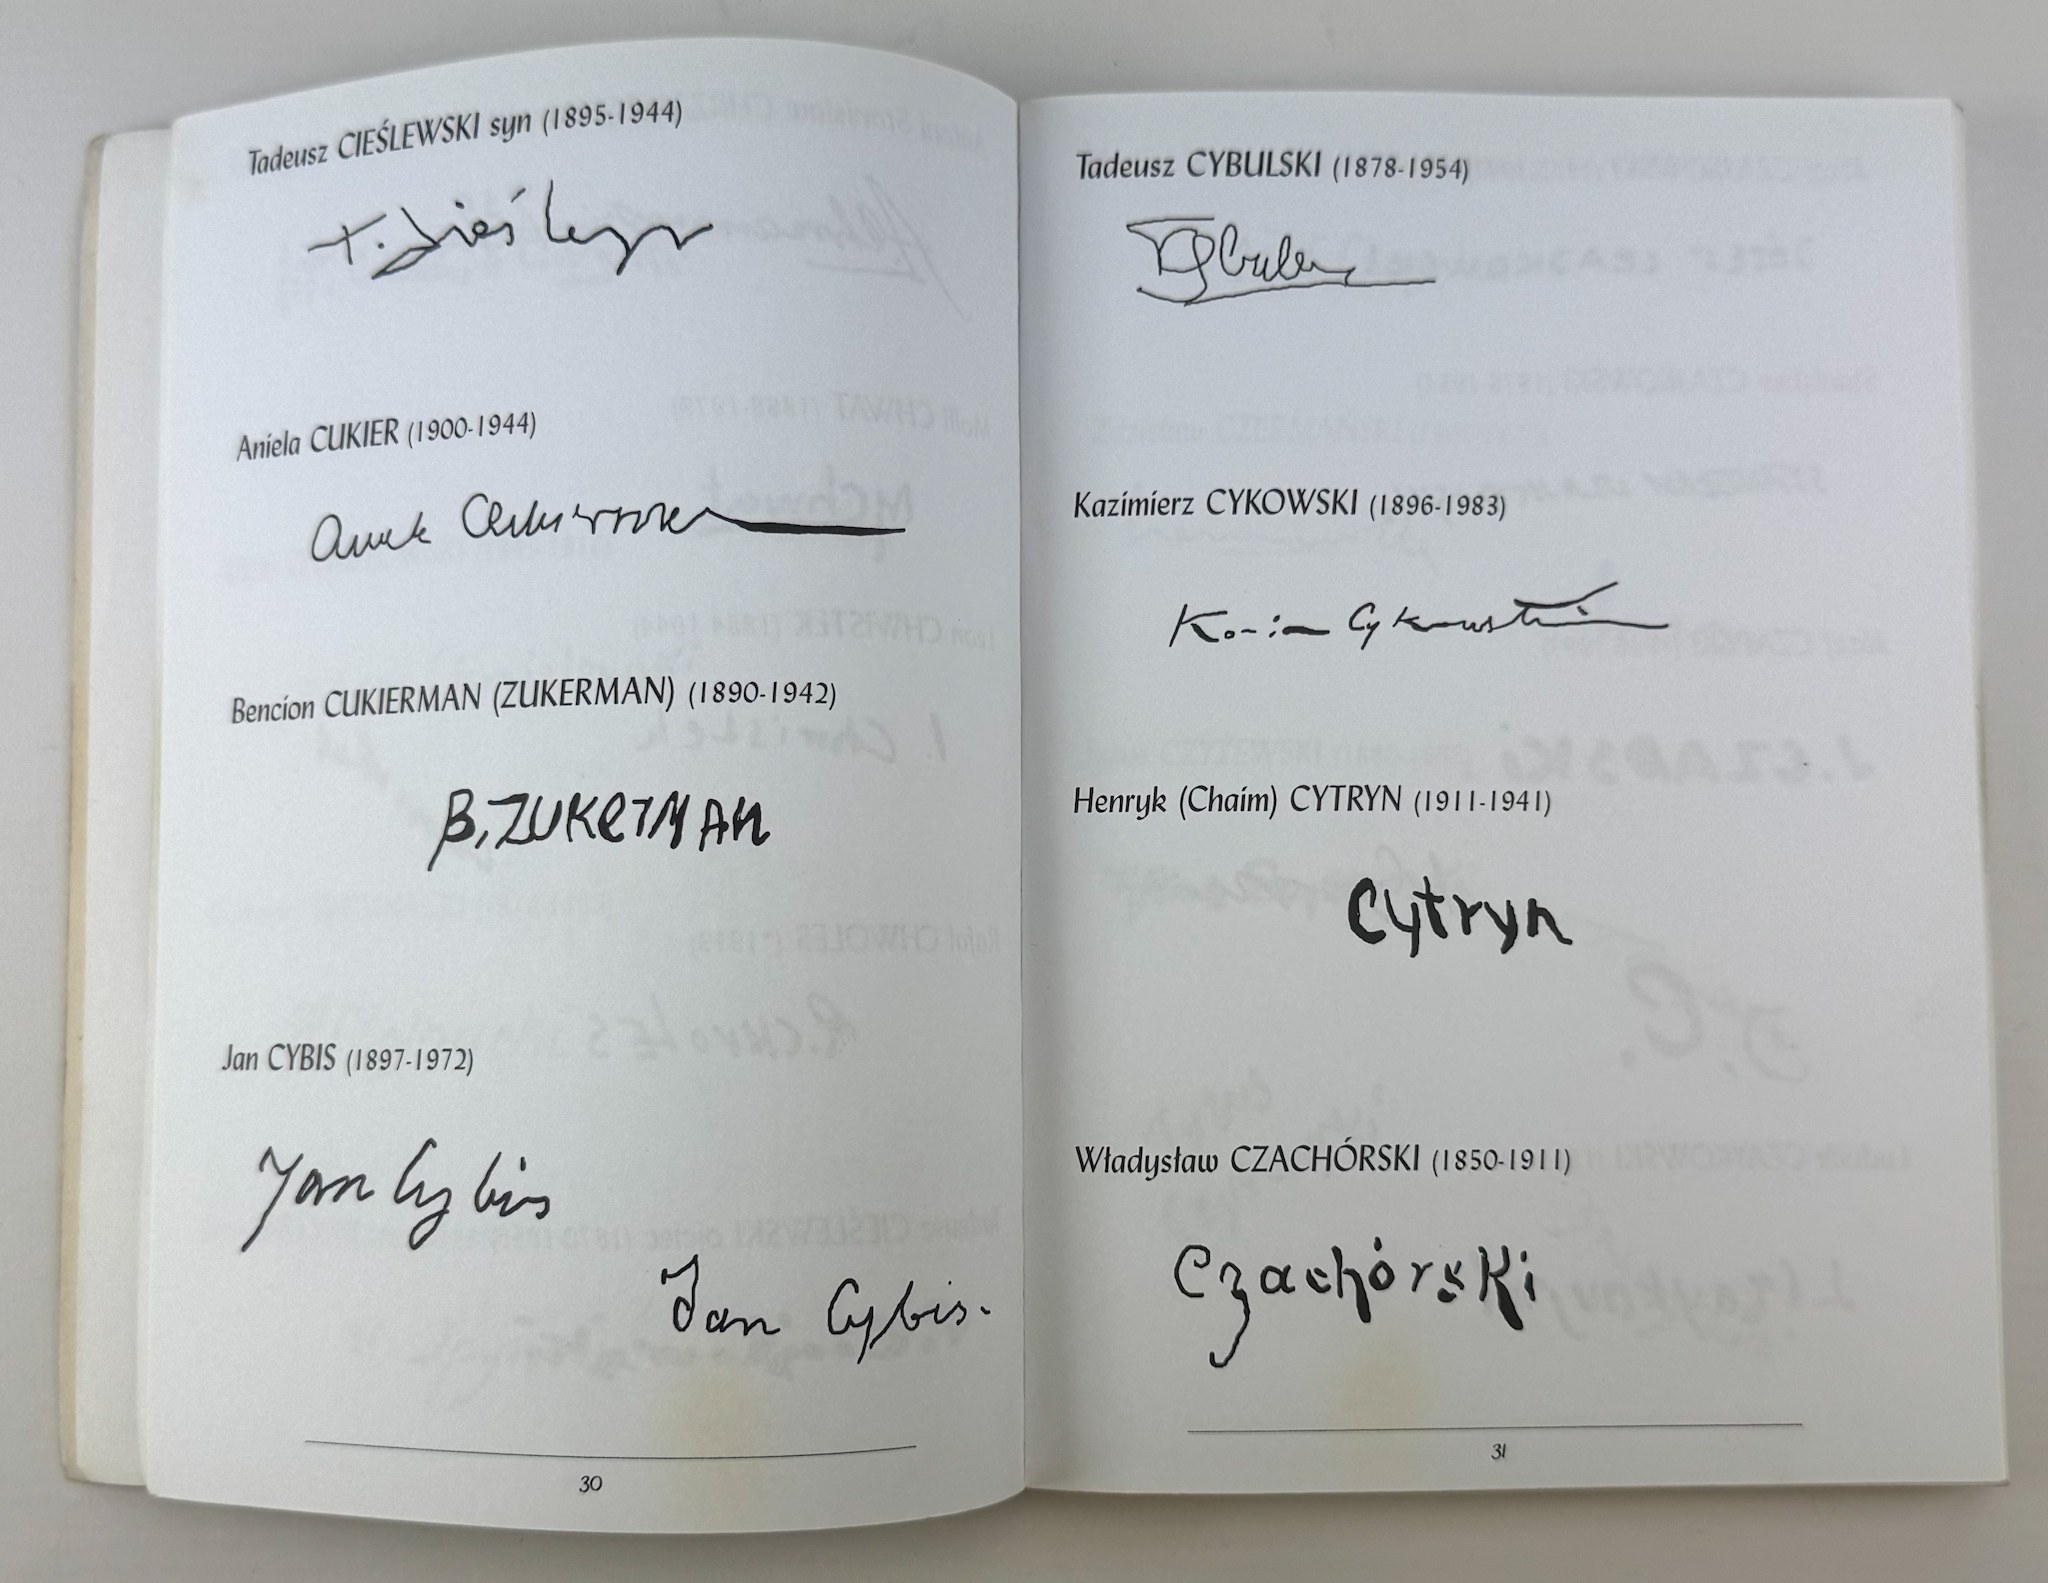 Tadeusz CIEŚLEWSKI syn (1895-1944)
Aniela CUKIER (1900-1944)
Bencion CUKIERMAN (ZUKERMAN) (1890-1942)
B. ZUKERMAN
Jan CYBIS (1897-1972)
Jan Cybis
Jan Cybis.
30
Tadeusz CYBULSKI (1878-1954)
Kazimierz CYKOWSKI (1896-1983)
Cykowski
Henryk (Chaim) CYTRYN (1911-1941)
Cytryn
Władysław CZACHÓRSKI (1850-1911)
Czachórski
31